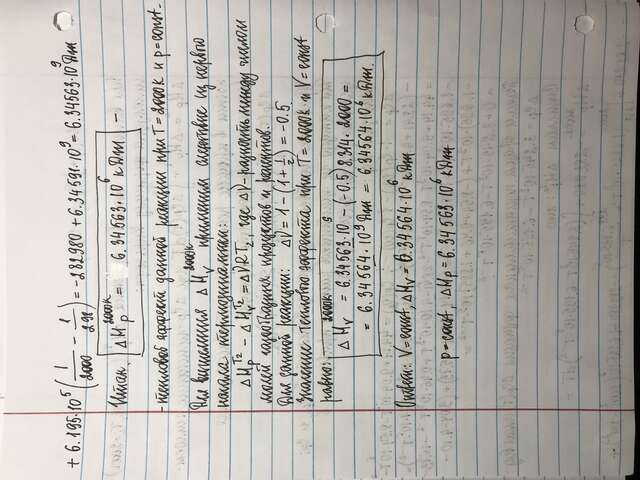 + 6.195·10⁵ (1/2000 − 1/298) = −282980 + 6.34591·10⁹ = 6.34563·10⁹ Дж
Итак, ΔHₚ²⁰⁰⁰ᴷ = 6.34563·10⁶ кДж –
– тепловой эффект данной реакции при T = 2000К и p = const.
Для вычисления ΔHᵥ²⁰⁰⁰ᴷ применим следствие из первого
начала термодинамики:
ΔHₚᵀ² − ΔHᵥᵀ² = ΔνRT₂, где Δν - разность между числом
молей газообразных продуктов и реагентов.
Для данной реакции: Δν = 1 − (1 + 1/2) = −0.5.
Значение теплового эффекта при T = 2000К и V = const
равно:
ΔHᵥ²⁰⁰⁰ᴷ = 6.34563·10⁹ − (−0.5) 8.314 · 2000 =
= 6.34564·10⁹ Дж = 6.34564·10⁶ кДж.
Ответ: V = const, ΔHᵥ = 6.34564·10⁶ кДж
p = const, ΔHₚ = 6.34563·10⁶ кДж